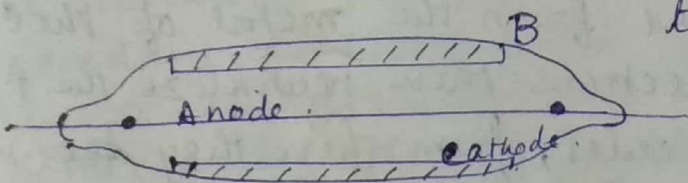 B
Anode.
Cathode.